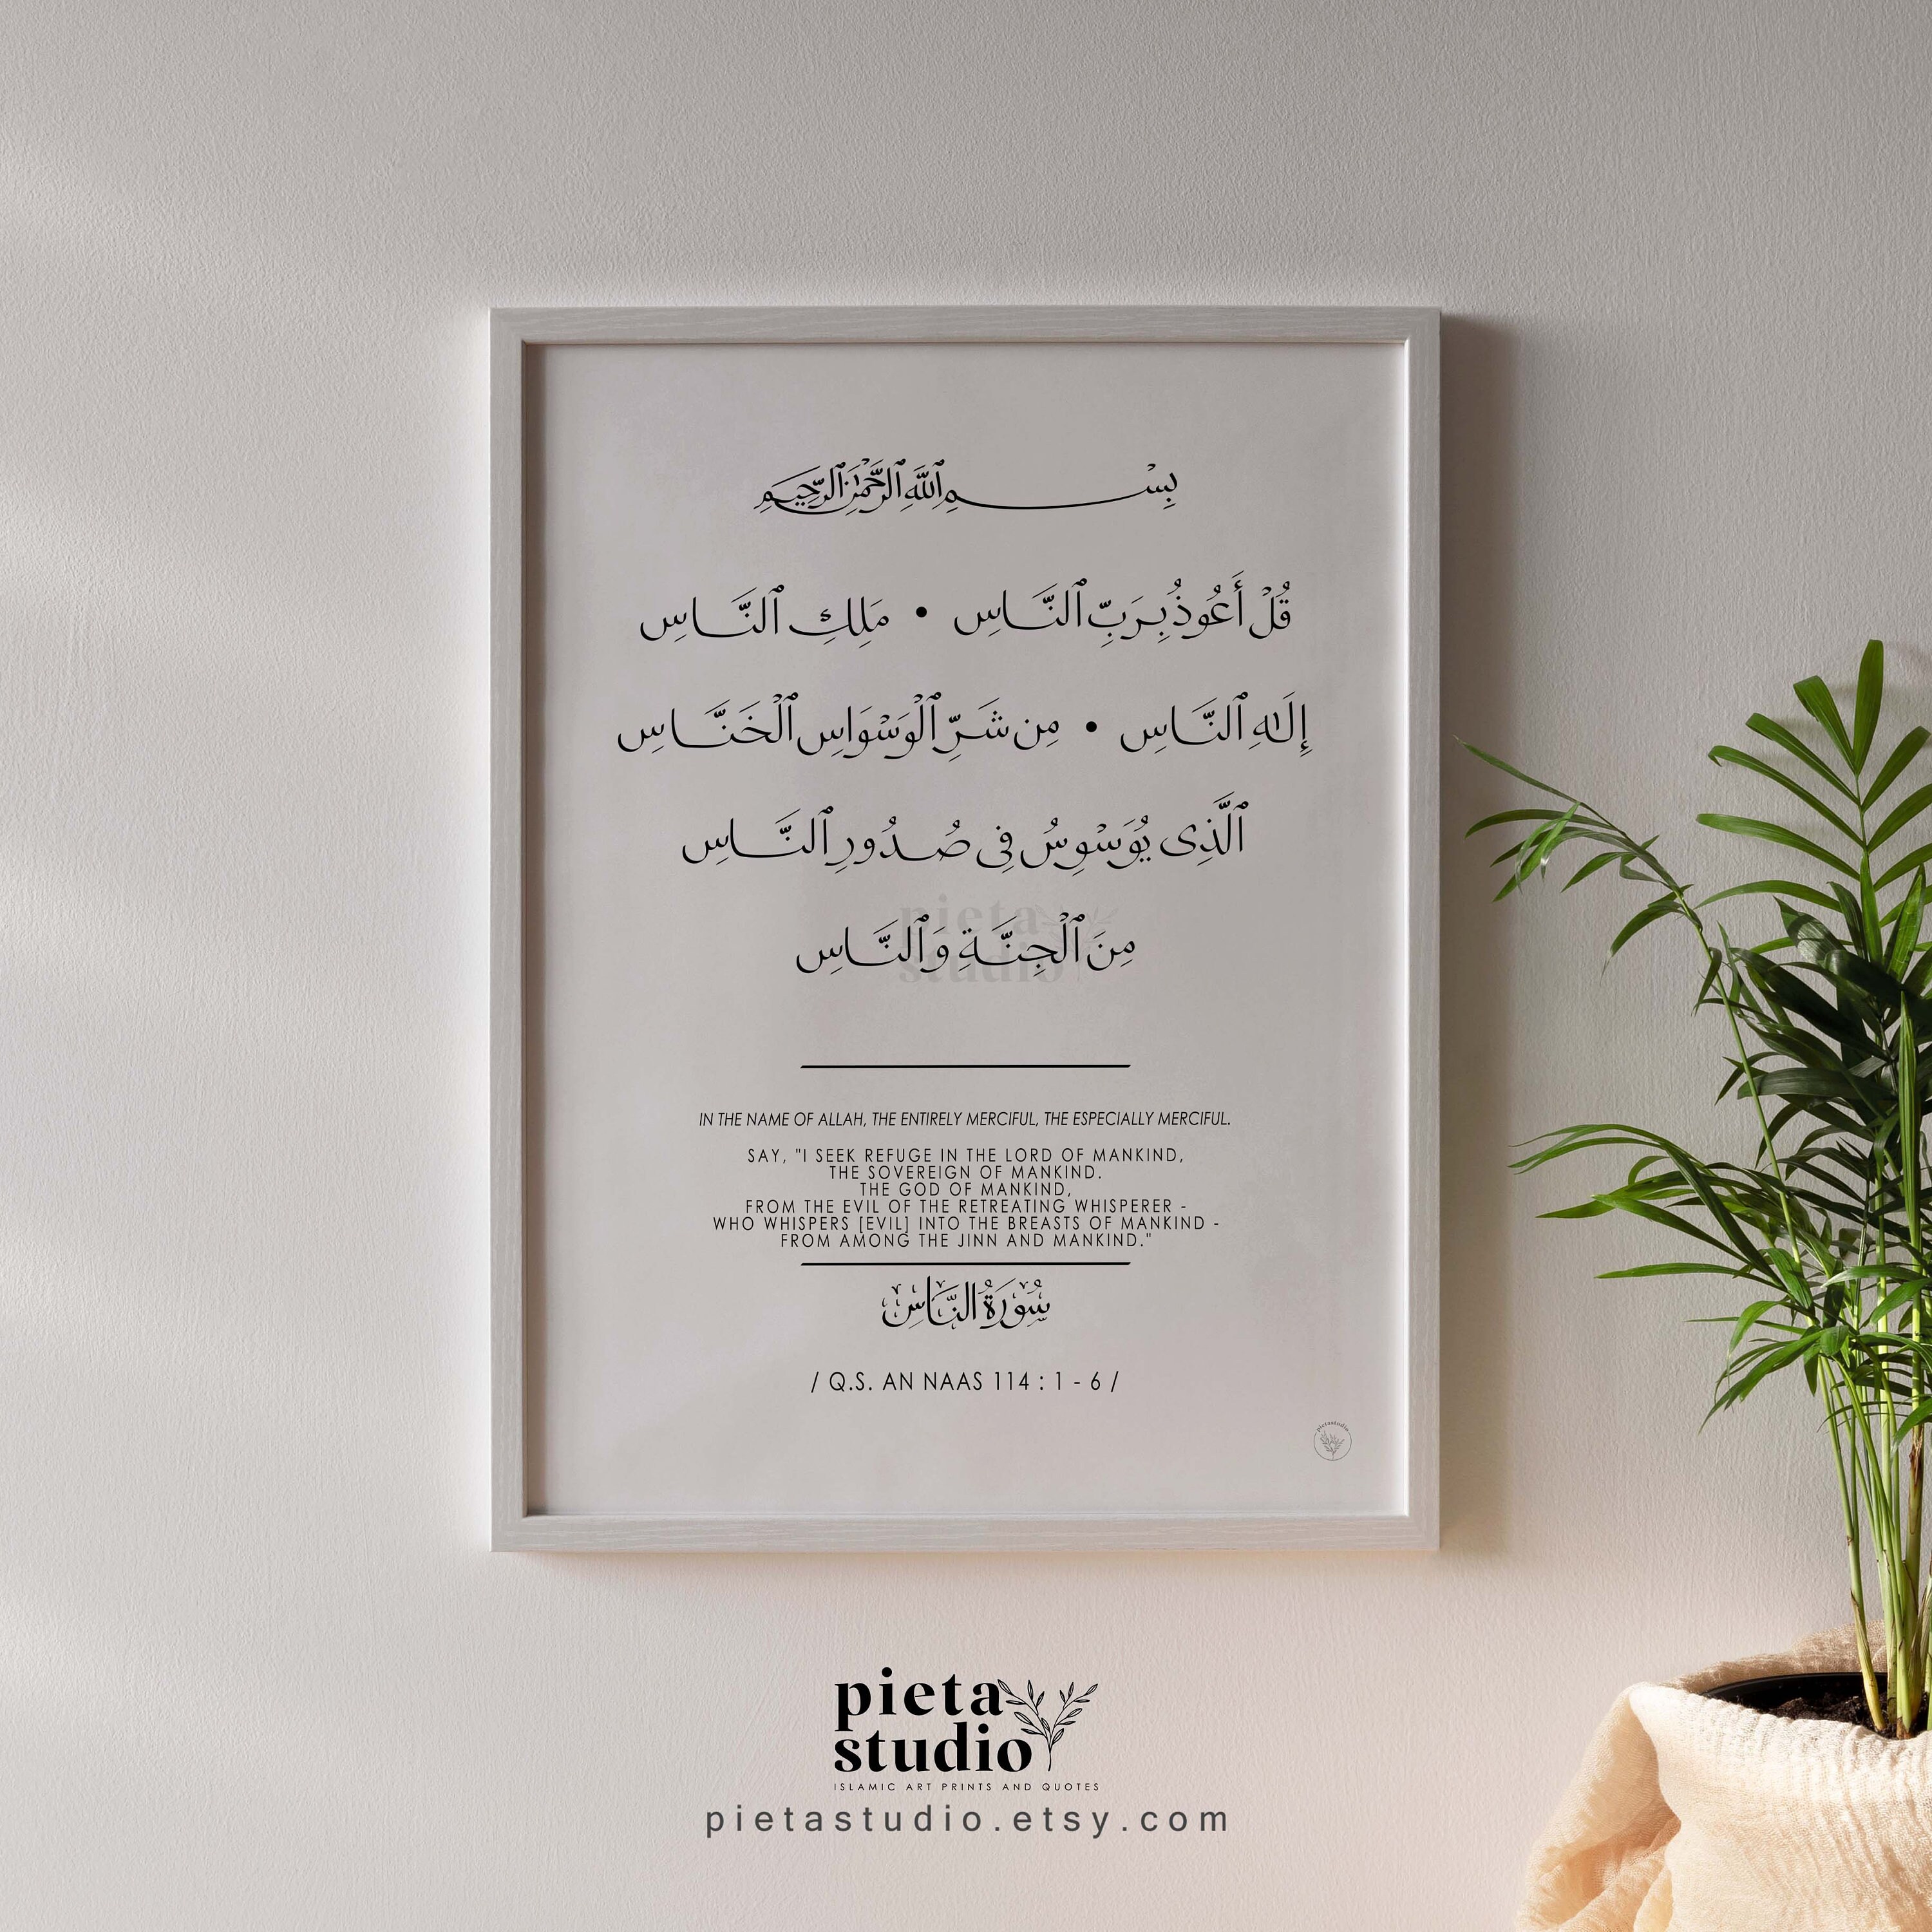 بِسْمِ ٱللَّهِ ٱلرَّحْمَٰنِ ٱلرَّحِيمِ
قُلْ أَعُوذُ بِرَبِّ ٱلنَّاسِ • مَلِكِ ٱلنَّاسِ
إِلَٰهِ ٱلنَّاسِ • مِن شَرِّ ٱلْوَسْوَاسِ ٱلْخَنَّاسِ
ٱلَّذِى يُوَسْوِسُ فِى صُدُورِ ٱلنَّاسِ
pieta
مِنَ ٱلْجِنَّةِ وَٱلنَّاسِ
studio
IN THE NAME OF ALLAH, THE ENTIRELY MERCIFUL, THE ESPECIALLY MERCIFUL.
SAY, "I SEEK REFUGE IN THE LORD OF MANKIND,
THE SOVEREIGN OF MANKIND.
THE GOD OF MANKIND,
FROM THE EVIL OF THE RETREATING WHISPERER -
WHO WHISPERS [EVIL] INTO THE BREASTS OF MANKIND -
FROM AMONG THE JINN AND MANKIND."
سُورَةُ النَّاسِ
/ Q.S. AN NAAS 114 : 1 - 6 /
pietastudio
pieta
studio
ISLAMIC ART PRINTS AND QUOTES
pietastudio.etsy.com